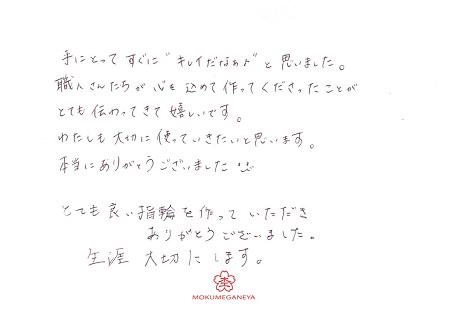 手にとってすぐに"キレイだなぁ♪"と思いました。
職人さんたちが心を込めて作ってくださったことが
とても伝わってきて嬉しいです。
わたしも大切に使っていきたいと思います。
本当にありがとうございました
とても良い指輪を作っていただき
ありがとうございました。
生涯大切にします。
MOKUMEGANEYA